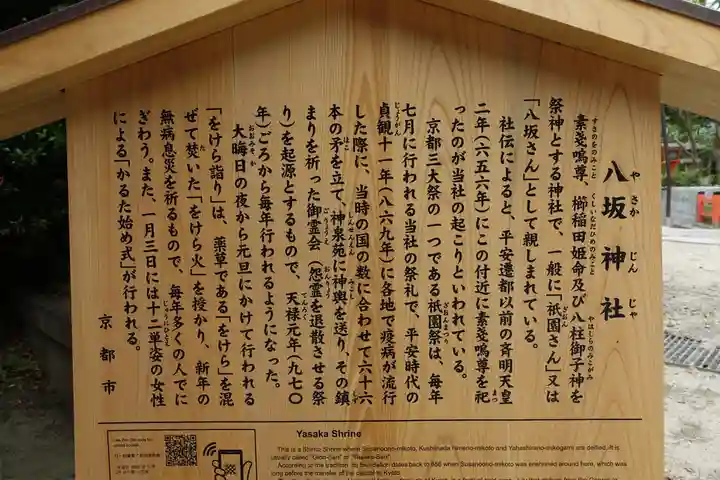 八坂神社
やさかじんじゃ
素戔嗚尊、櫛稲田姫命及び八柱御子神を
すさのをのみこと くしいなだひめのみこと やはしらのみこがみ
祭神とする神社で、一般に「祇園さん」又は
ぎおん
「八坂さん」として親しまれている。
社伝によると、平安遷都以前の斉明天皇
二年(六五六年)にこの付近に素戔嗚尊を祀
まつ
ったのが当社の起こりといわれている。
京都三大祭の一つである祇園祭は、毎年
ぎおんまつり
七月に行われる当社の祭礼で、平安時代の
貞観十一年(八六九年)に各地で疫病が流行
じょうがん
した際に、当時の国の数に合わせて六十六
本の矛を立て、神泉苑に神輿を送り、その鎮
ほこ しんせんえん みこし しず
まりを祈った御霊会(怨霊を退散させる祭
ごりょうえ おんりょう
り)を起源とするもので、天禄元年(九七〇
てんろく
年)ごろから毎年行われるようになった。
大晦日の夜から元旦にかけて行われる
おおみそか
「をけら詣り」は、薬草である「をけら」を混
ぜて焚いた「をけら火」を授かり、新年の
た
無病息災を祈るもので、毎年多くの人でに
ぎわう。また、一月三日には十二単姿の女性
じゅうにひとえ
による「かるた始め式」が行われる。
京都市
Yasaka Shrine
This is a Shinto Shrine where Susanoono-mikoto, Kushiinada himeno-mikoto and Yahashirano-mikogami are deified. It is
usually called "Gion-San" or "Yasaka-San".
According to the tradition, its foundation dates back to 656 when Susanoono-mikoto was enshrined around here, which was
long before the transfer of the capital to Kyoto.